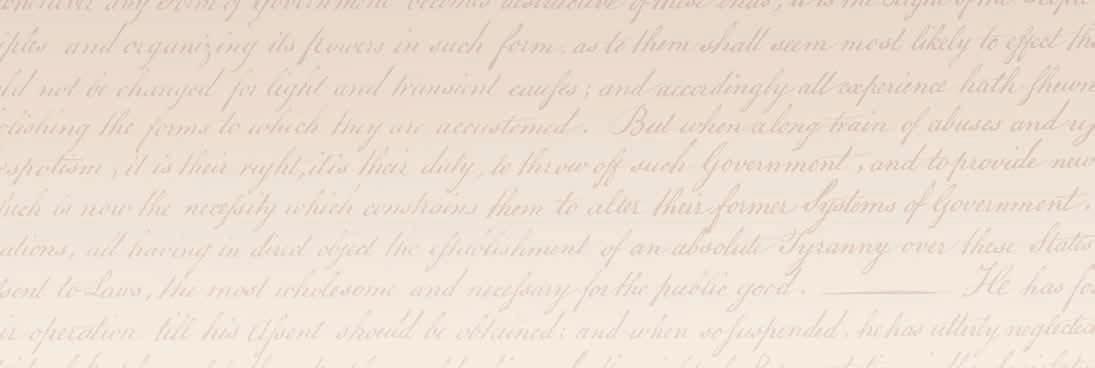 whenever any Form of Government becomes destructive of these ends, it is the Right of the People
iples and organizing its powers in such form, as to them shall seem most likely to effect the
uld not be changed for light and transient causes; and accordingly all experience hath shewn
olishing the forms to which they are accustomed. But when a long train of abuses and us
espotism, it is their right, it is their duty, to throw off such Government, and to provide new
hich is now the necessity which constrains them to alter their former Systems of Government.
ations, all having in direct object the establishment of an absolute Tyranny over these States
ssent to Laws, the most wholesome and necessary for the public good. — He has for
ir operation till his Assent should be obtained; and when so suspended, he has utterly neglected